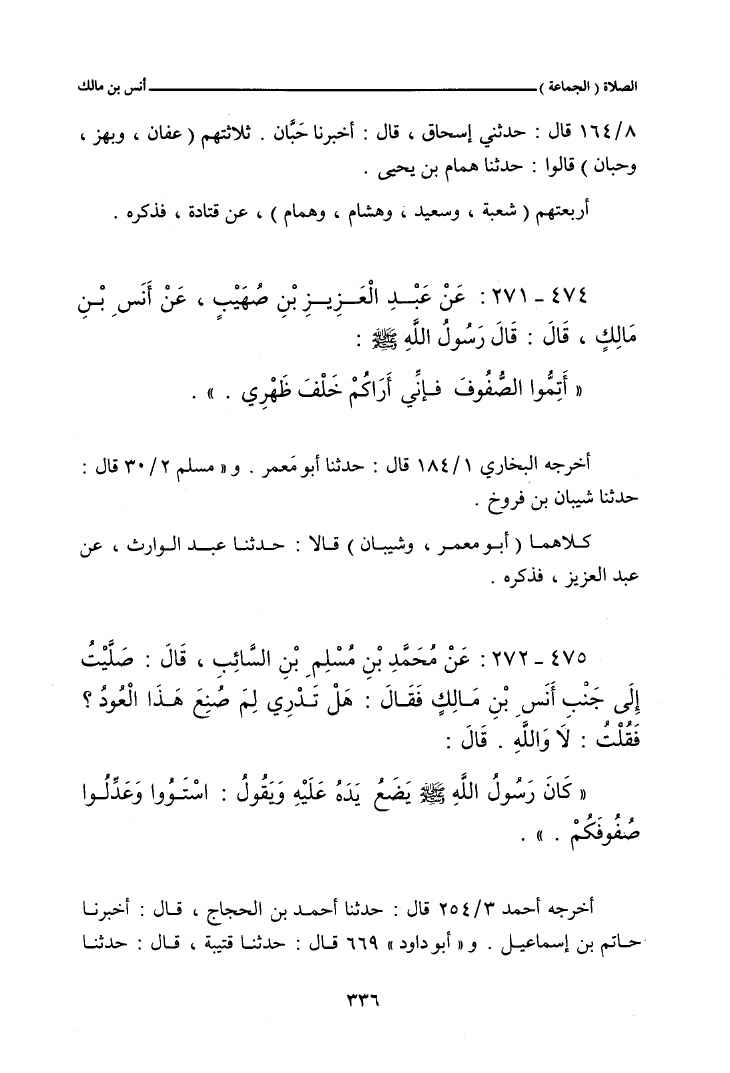 الصلاة ( الجماعة ) ـــــــــــــــــــــــــــــــــــــــــ أنس بن مالك
١٦٤/٨ قال : حدثني إسحاق ، قال : أخبرنا حَبَّان . ثلاثتهم ( عفان ، وبهز ،
وحبان ) قالوا : حدثنا همام بن يحيى .
أربعتهم ( شعبة ، وسعيد ، وهشام ، وهمام ) ، عن قتادة ، فذكره .
٤٧٤ ـ ٢٧١ : عَنْ عَبْدِ الْعَزِيزِ بْنِ صُهَيْبٍ ، عَنْ أَنَسِ بْنِ
مَالِكٍ ، قَالَ : قَالَ رَسُولُ اللَّهِ ﷺ :
« أَتِمُّوا الصُّفُوفَ فَإِنِّي أَرَاكُمْ خَلْفَ ظَهْرِي . » .
أخرجه البخاري ١٨٤/١ قال : حدثنا أبو مَعمر . و « مسلم ٣٠/٢ قال :
حدثنا شيبان بن فروخ .
كلاهما ( أبو معمر ، وشيبان ) قالا : حدثنا عبد الوارث ، عن
عبد العزيز ، فذكره .
٤٧٥ ـ ٢٧٢ : عَنْ مُحَمَّدِ بْنِ مُسْلِمِ بْنِ السَّائِبِ ، قَالَ : صَلَّيْتُ
إِلَى جَنْبِ أَنَسِ بْنِ مَالِكٍ فَقَالَ : هَلْ تَدْرِي لِمَ صُنِعَ هَذَا الْعُودُ ؟
فَقُلْتُ : لَا وَاللَّهِ . قَالَ :
« كَانَ رَسُولُ اللَّهِ ﷺ يَضَعُ يَدَهُ عَلَيْهِ وَيَقُولُ : اسْتَوُوا وَعَدِّلُوا
صُفُوفَكُمْ . » .
أخرجه أحمد ٢٥٤/٣ قال : حدثنا أحمد بن الحجاج ، قال : أخبرنا
حاتم بن إسماعيل . و « أبو داود » ٦٦٩ قال : حدثنا قتيبة ، قال : حدثنا
٣٣٦